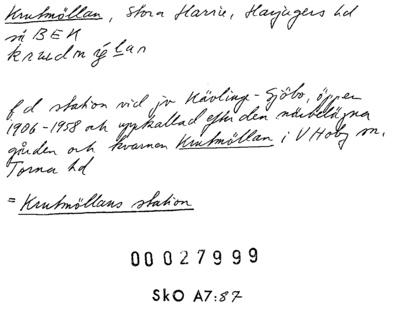 Krutmöllan, Stora Harrie, Harjagers hd
sä BEK
f d station vid jv Kävlinge-Sjöbo, öppen
1906-1958 och uppkallad efter den närbelägna
gården och kvarnen Krutmöllan i V Hoby sn,
Torna hd
= Krutmöllans station
00027999
SkO A7:87